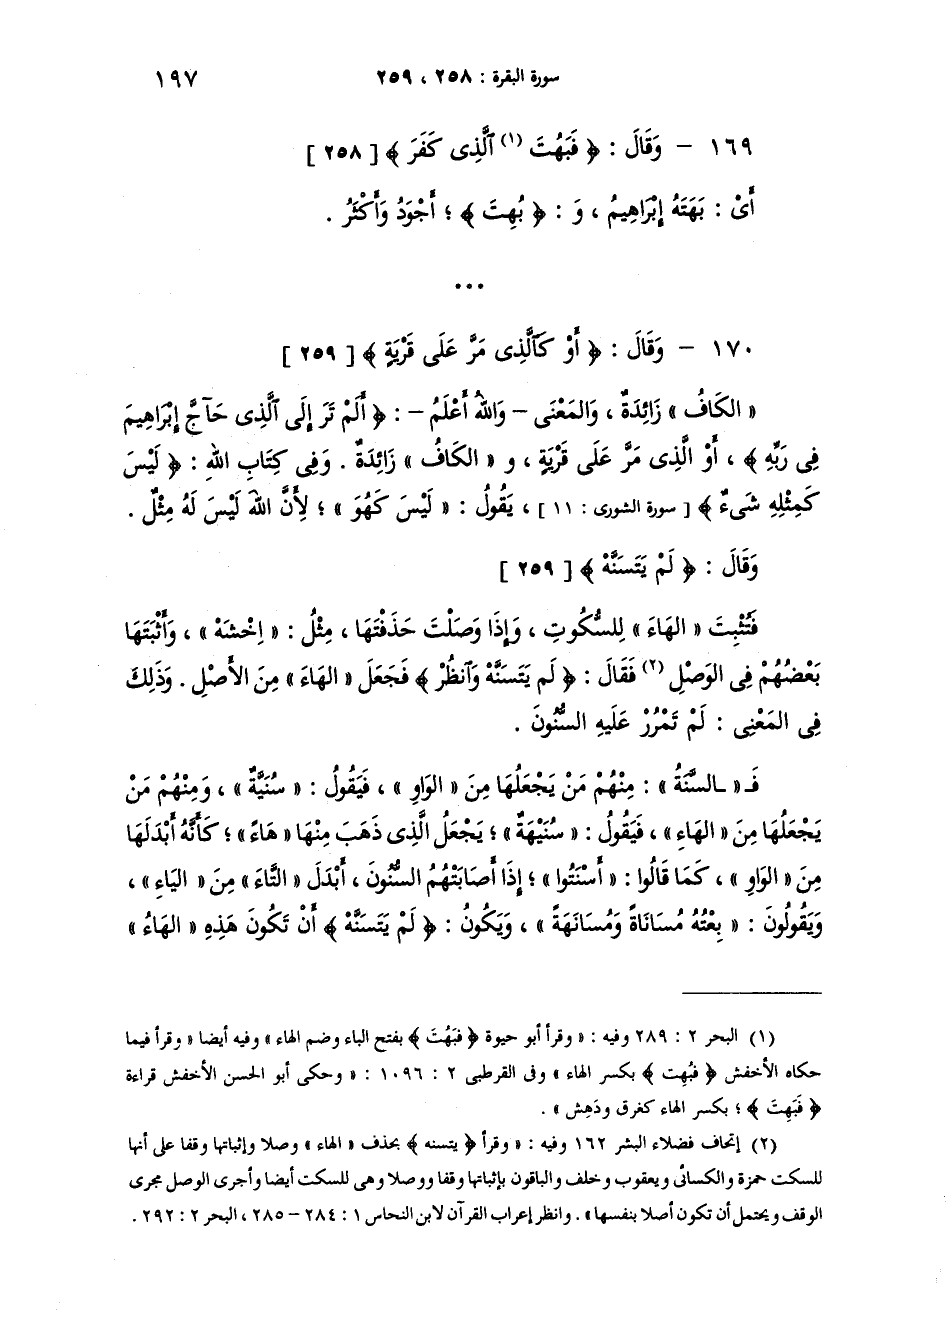 سورة البقرة : ٢٥٨ ، ٢٥٩ ١٩٧
١٦٩ – وَقَالَ : ﴿ فَبَهُتَ (١) ٱلَّذِى كَفَرَ ﴾ [ ٢٥٨ ]
أَىْ : بَهَتَهُ إِبْرَاهِيمُ ، وَ : ﴿ بُهِتَ ﴾ ؛ أَجْوَدُ وَأَكْثَرُ .
...
١٧٠ – وَقَالَ : ﴿ أَوْ كَٱلَّذِى مَرَّ عَلَى قَرْيَةٍ ﴾ [ ٢٥٩ ]
« الكَافُ » زَائِدَةٌ ، وَالمَعْنَى – وَاللهُ أَعْلَمُ – : ﴿ أَلَمْ تَرَ إِلَى ٱلَّذِى حَآجَّ إِبْرَاهِيمَ
فِى رَبِّهِ ﴾ ، أَوْ الَّذِى مَرَّ عَلَى قَرْيَةٍ ، و « الكَافُ » زَائِدَةٌ . وَفِى كِتَابِ اللهِ : ﴿ لَيْسَ
كَمِثْلِهِ شَىءٌ ﴾ [ سورة الشورى : ١١ ] ، يَقُولُ : « لَيْسَ كَهُوَ » ؛ لِأَنَّ اللهَ لَيْسَ لَهُ مِثْلٌ .
وَقَالَ : ﴿ لَمْ يَتَسَنَّهْ ﴾ [ ٢٥٩ ]
فَتُثْبِتَ « الهَاءَ » لِلسُّكُوتِ ، وَإِذَا وَصَلْتَ حَذَفْتَهَا ، مِثْلُ : « اِخْشَهْ » ، وَأَثْبَتَهَا
بَعْضُهُمْ فِى الوَصْلِ (٢) فَقَالَ : ﴿ لَم يَتَسَنَّهْ وَٱنظُرْ ﴾ فَجَعَلَ « الهَاءَ » مِنَ الأَصْلِ . وَذَلِكَ
فِى المَعْنِى : لَمْ تَمْرُرْ عَلَيهِ السُّنُونَ .
فَـ « ـالسَّنَةُ » : مِنْهُمْ مَنْ يَجْعَلُهَا مِنَ « الوَاوِ » ، فَيَقُولُ : « سُنَيَّةٌ » ، وَمِنْهُمْ مَنْ
يَجْعَلُهَا مِنَ « الهَاءِ » ، فَيَقُولُ : « سُنَيْهَةٌ » ؛ يَجْعَلُ الَّذِى ذَهَبَ مِنْهَا « هَاءً » ؛ كَأَنَّهُ أَبْدَلَهَا
مِنَ « الوَاوِ » ، كَمَا قَالُوا : « أَسْنَتُوا » ؛ إِذَا أَصَابَتْهُمُ السُّنُونَ ، أَبْدَلَ « التَّاءَ » مِنَ « اليَاءِ » ،
وَيَقُولُونَ : « بِعْتُهُ مُسَانَاةً وَمُسَانَهَةً » ، وَيَكُونُ : ﴿ لَمْ يَتَسَنَّهْ ﴾ أَنْ تَكُونَ هَذِهِ « الهَاءُ »
(١) البحر ٢ : ٢٨٩ وفيه : « وقرأ أبو حيوة ﴿ فَبَهُتَ ﴾ بفتح الباء وضم الهاء » وفيه أيضا « وقرأ فيما
حكاه الأخفش ﴿ فَبُهِت ﴾ بكسر الهاء » وفى القرطبى ٢ : ١٠٩٦ : « وحكى أبو الحسن الأخفش قراءة
﴿ فَبَهِتَ ﴾ ؛ بكسر الهاء كغرق ودَهِش » .
(٢) إتحاف فضلاء البشر ١٦٢ وفيه : « وقرأ ﴿ يتسنه ﴾ بحذف « الهاء » وصلا وإثباتها وقفا على أنها
للسكت حمزة والكسائى ويعقوب وخلف والباقون بإثباتها وقفا ووصلا وهى للسكت أيضا وأجرى الوصل مجرى
الوقف ويحتمل أن تكون أصلا بنفسها » . وانظر إعراب القرآن لابن النحاس ١ : ٢٨٤ – ٢٨٥ ، البحر ٢ : ٢٩٢ .